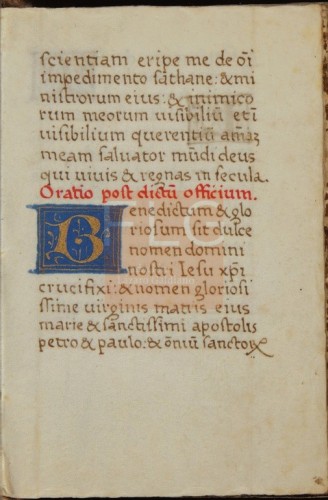 scientiam eripe me de oī
impedimento sathane: & mi
nistrorum eius: & inimico
rum meorum uisibiliū et ī
uisibilium querentiū amā
meam saluator mūdi deus
qui uiuis & regnas in secula.
Oratio post dictū officium.
Benedictum & glo
riosum sit dulce
nomen domini
nostri Iesu xp̄i
crucifixi: & nomen gloriosi
ssime uirginis matris eius
marie & sanctissimi apostolis
petro & paulo: & oniū sanctoꝝ